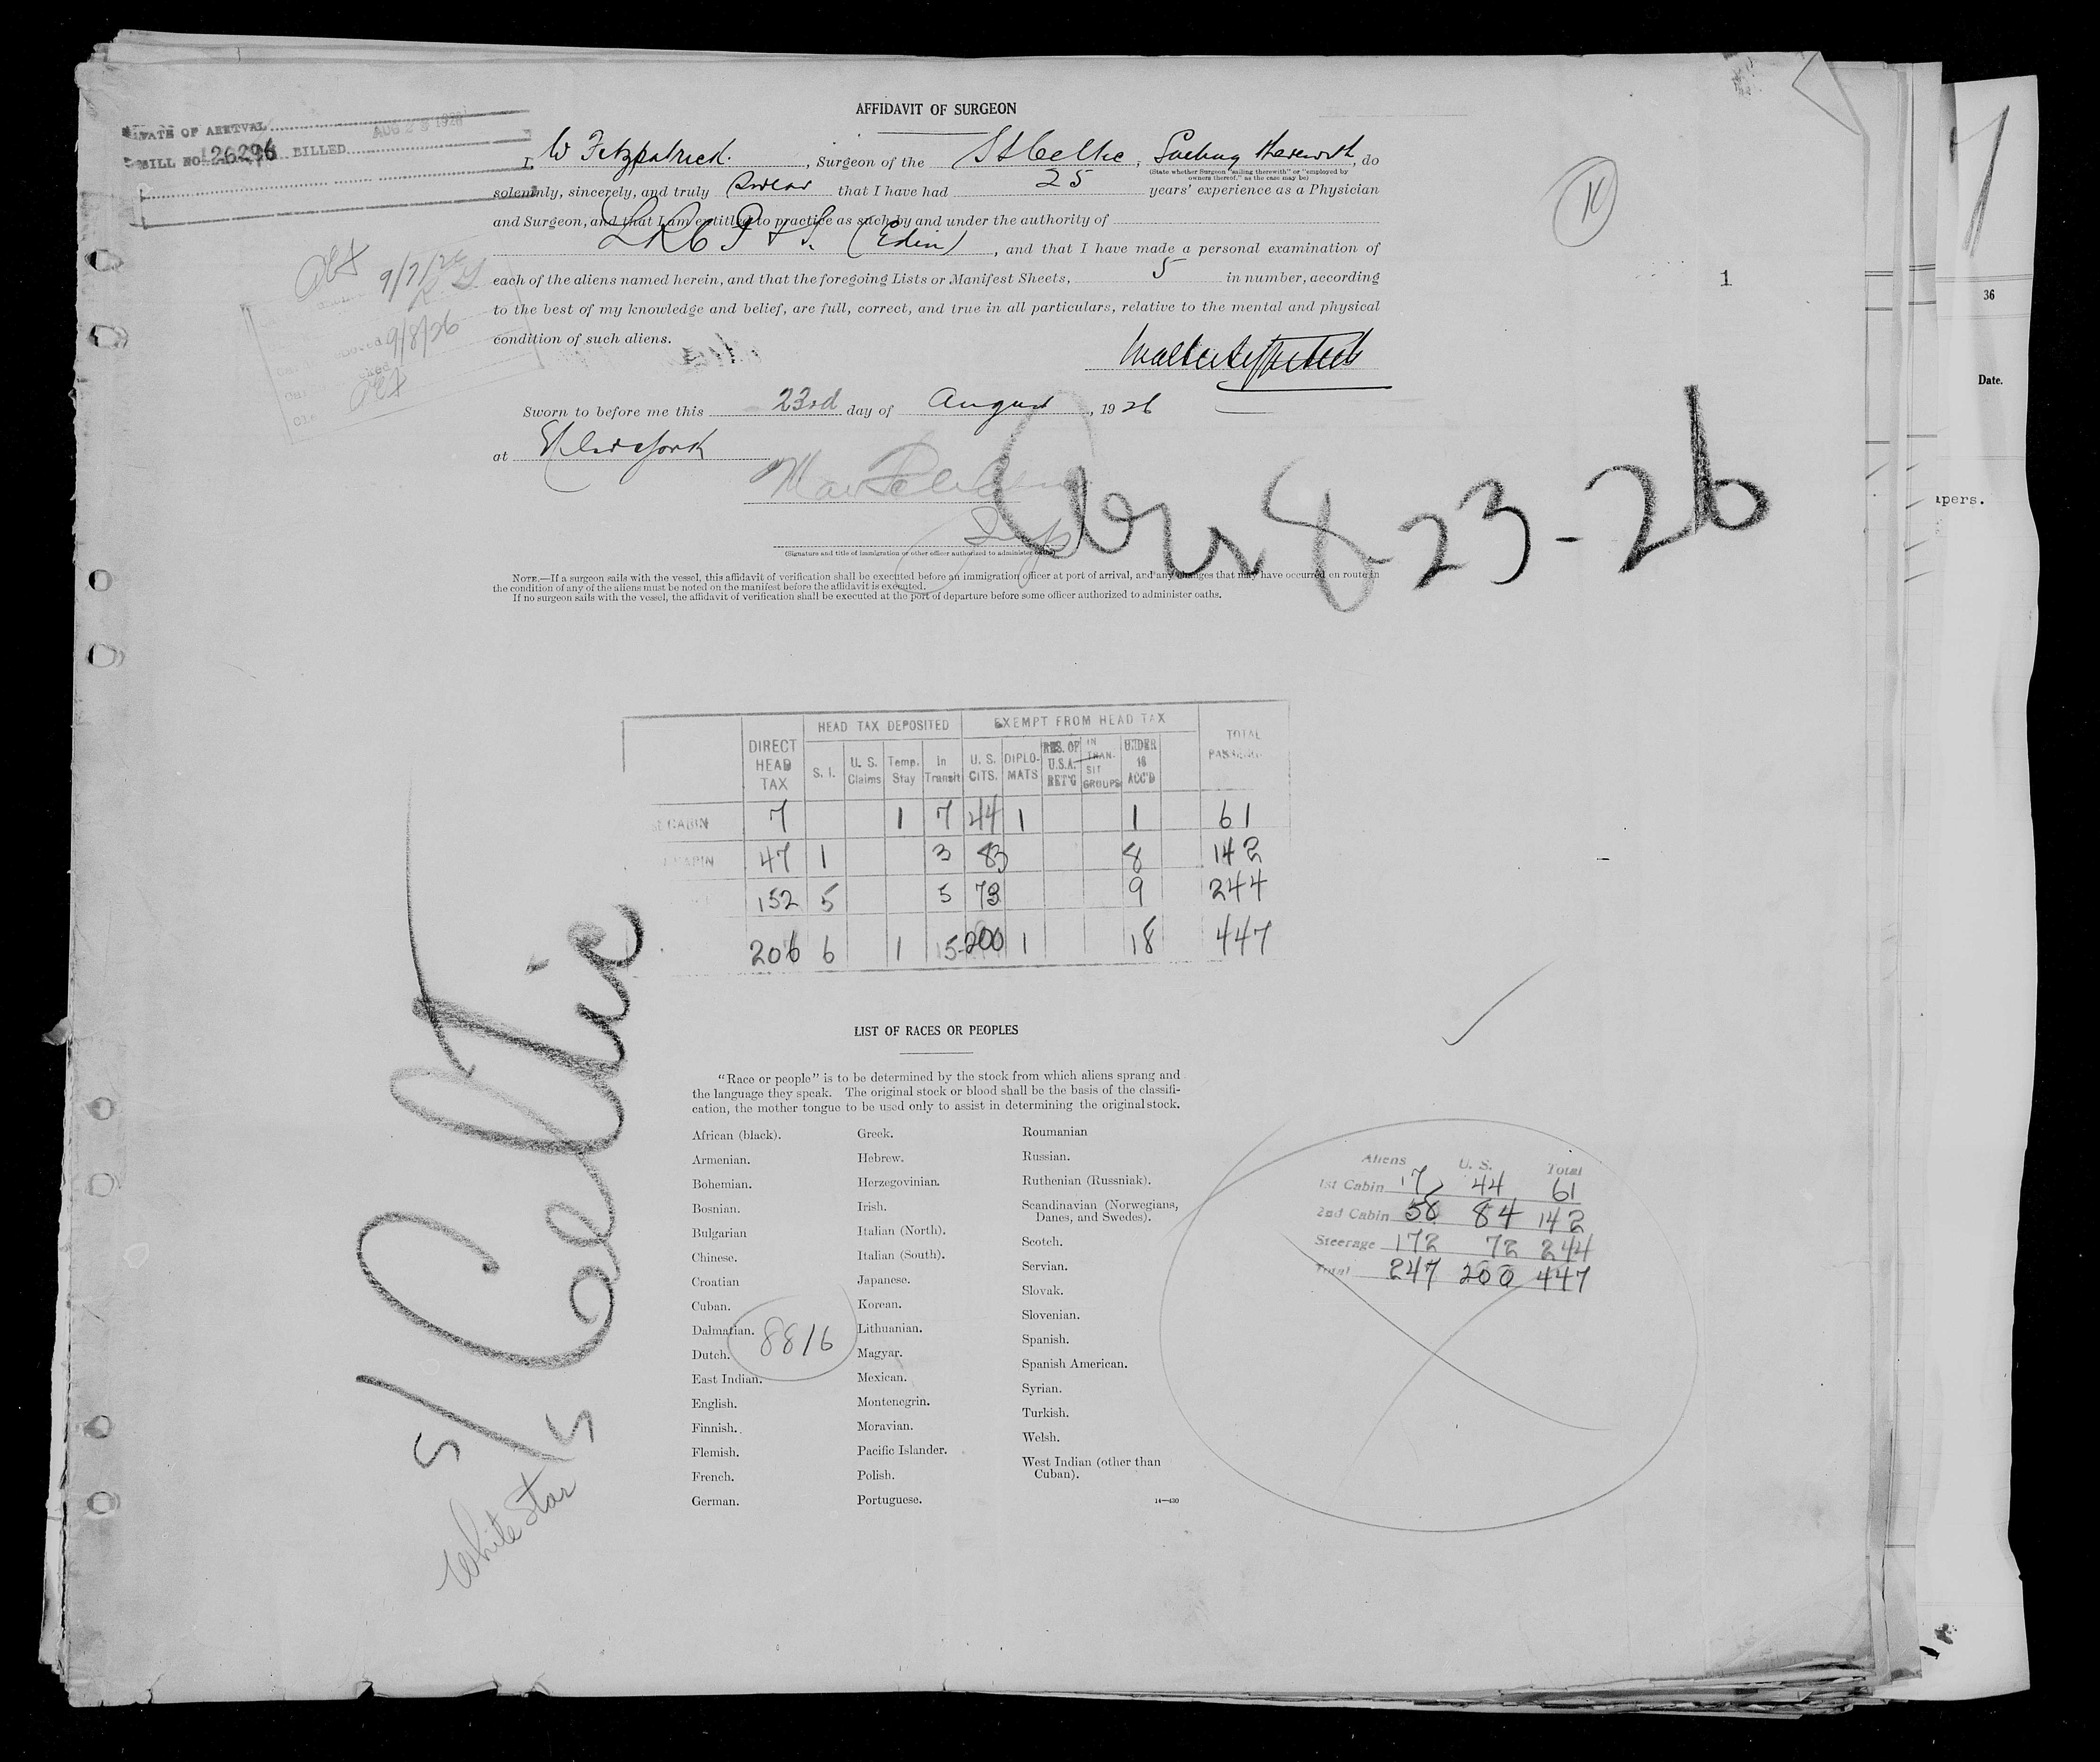 AFFIDAVIT OF SURGEON
DATE OF ARRIVAL AUG 23 1926
BILL NO. 26296 BILLED
I, W Fitzpatrick, Surgeon of the SS Celtic, Sailing therewith, do
(State whether Surgeon "sailing therewith" or "employed by
owners thereof," as the case may be)
solemnly, sincerely, and truly swear that I have had 25 years' experience as a Physician
and Surgeon, and that I am entitled to practice as such by and under the authority of
LRCP & S. (Edin), and that I have made a personal examination of
each of the aliens named herein, and that the foregoing Lists or Manifest Sheets, 5 in number, according
to the best of my knowledge and belief, are full, correct, and true in all particulars, relative to the mental and physical
condition of such aliens.
9/7/26
9/8/26
K
1
7
36
Date.
Sworn to before me this 23rd day of August, 1926
at New York
Insp
8-23-26
apers.
(Signature and title of immigration or other officer authorized to administer oaths)
NOTE.—If a surgeon sails with the vessel, this affidavit of verification shall be executed before an immigration officer at port of arrival, and any changes that may have occurred en route in
the condition of any of the aliens must be noted on the manifest before the affidavit is executed.
If no surgeon sails with the vessel, the affidavit of verification shall be executed at the port of departure before some officer authorized to administer oaths.
DIRECT HEAD TAX HEAD TAX DEPOSITED EXEMPT FROM HEAD TAX TOTAL
S. I. U. S. Claims Temp. Stay In Transit U. S. CITS. DIPLOMATS RES. OF U.S.A. RET'G IN TRANSIT GROUPS UNDER 16 ACC'D
CABIN 7 1 7 44 1 1 61
CABIN 47 1 3 83 8 142
152 5 5 73 9 244
206 6 1 15 200 1 18 447
S/S Celtic
White Star
LIST OF RACES OR PEOPLES
"Race or people" is to be determined by the stock from which aliens sprang and
the language they speak. The original stock or blood shall be the basis of the classifi-
cation, the mother tongue to be used only to assist in determining the original stock.
African (black).
Armenian.
Bohemian.
Bosnian.
Bulgarian
Chinese.
Croatian
Cuban.
Dalmatian.
Dutch.
East Indian.
English.
Finnish.
Flemish.
French.
German.
8816
Greek.
Hebrew.
Herzegovinian.
Irish.
Italian (North).
Italian (South).
Japanese.
Korean.
Lithuanian.
Magyar.
Mexican.
Montenegrin.
Moravian.
Pacific Islander.
Polish.
Portuguese.
Roumanian
Russian.
Ruthenian (Russniak).
Scandinavian (Norwegians,
Danes, and Swedes).
Scotch.
Servian.
Slovak.
Slovenian.
Spanish.
Spanish American.
Syrian.
Turkish.
Welsh.
West Indian (other than
Cuban).
14—430
Aliens U. S. Total
1st Cabin 17 44 61
2nd Cabin 58 84 142
Steerage 172 72 244
Total 247 200 447